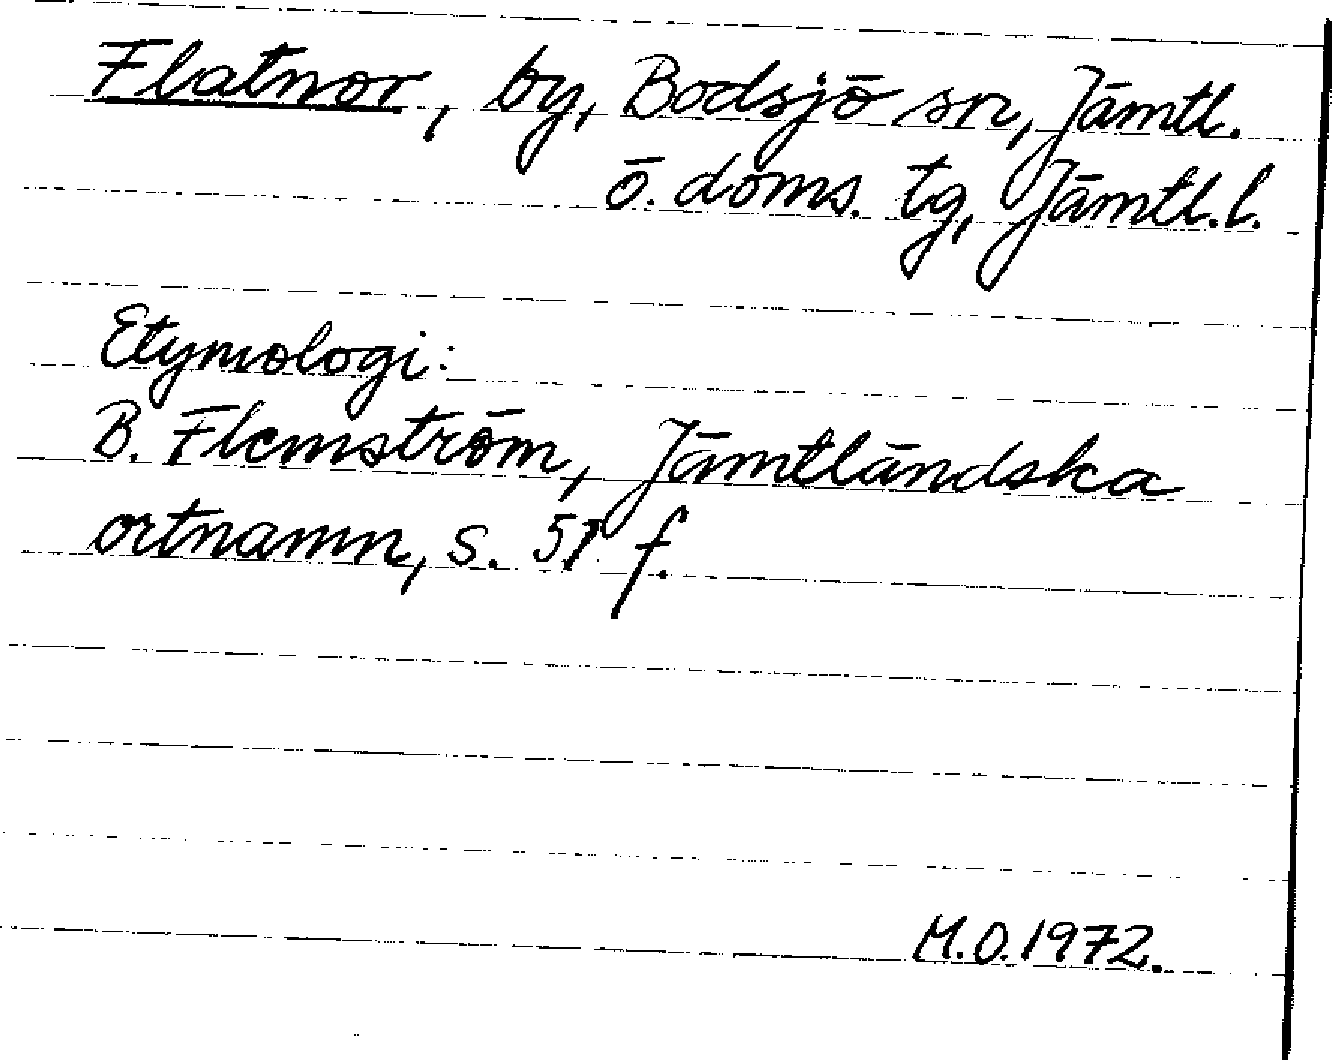 Flatnor, by, Bodsjö sn, Jämtl.
ö. doms. tg, Jämtl.l.
Etymologi:
B. Flemström, Jämtländska
ortnamn, s. 51 f.
M.O.1972.